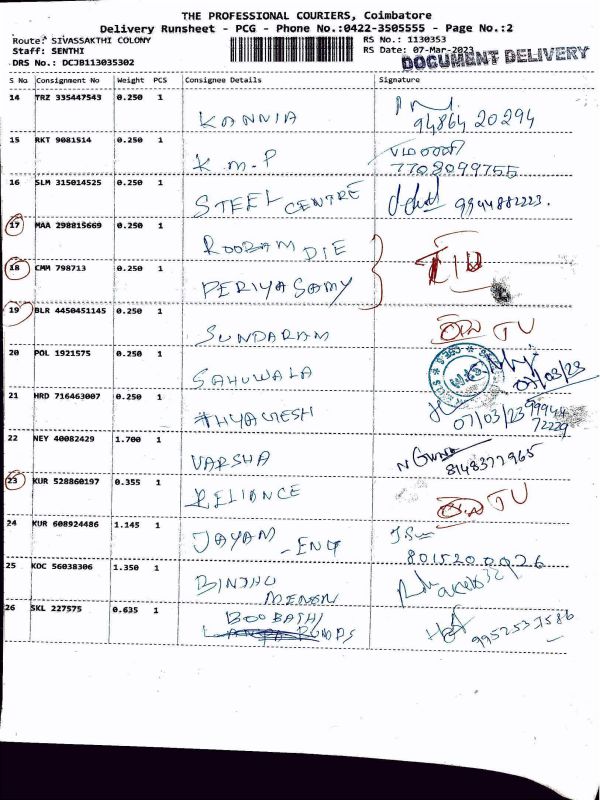 THE PROFESSIONAL COURIERS, Coimbatore
Delivery Runsheet - PCG - Phone No.:0422-3505555 - Page No.:2
Route: SIVASSAKTHI COLONY RS No.: 1130353
Staff: SENTHI RS Date: 07-Mar-2023
DRS No.: DCJB113035302 DOCUMENT DELIVERY
S No Consignment No Weight PCS Consignee Details Signature
14 TRZ 335447543 0.250 1
KANNIA 94864 20294
15 RKT 9081514 0.250 1
K.M.P 7708099755
16 SLM 315014525 0.250 1
STEEL CENTRE 9944882223.
17 MAA 298815669 0.250 1
ROOBAM DIE
18 CMM 798713 0.250 1
PERIYASAMY
19 BLR 4450451145 0.250 1
SUNDARAM
20 POL 1921575 0.250 1
SAHUWALA 07/03/23
21 HRD 716463007 0.250 1
07/03/23 99944
72229
22 NEY 40082429 1.700 1
VARSHA 8148377965
23 KUR 528860197 0.355 1
RELIANCE
24 KUR 608924486 1.145 1
JAYAM - ENG
8015200026
25 KOC 56038306 1.350 1
BINTHU
MENON
26 SKL 227575 0.635 1
BOOBATHI
PUMPS